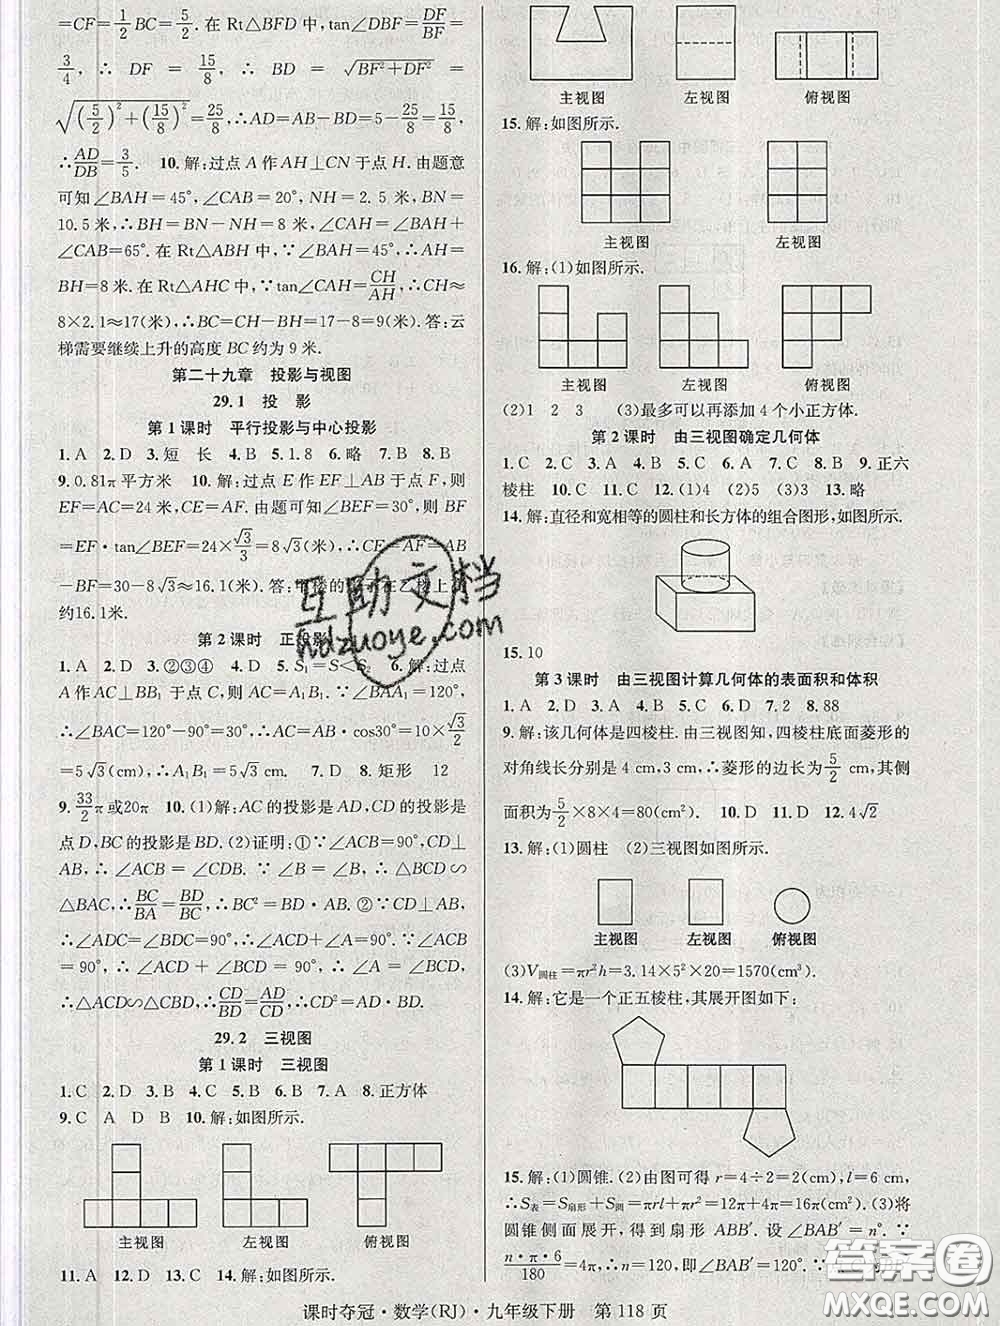 =CF=1/2 BC=5/2. 在 Rt△BFD 中, tan∠FBD=DF/BF=
3/4, ∴ DF = 15/8, ∴ BD = √(BF²+DF²) =
√((5/2)²+(15/8)²)=25/8, ∴AD=AB-BD=5-25/8=15/8,
∴AD/DB=3/5. 10. 解:过点 A 作 AH⊥CN 于点 H. 由题意
可知 ∠BAH=45°, ∠CAB=20°, NH=2.5 米, BN=
10.5 米, ∴BH=BN-NH=8 米, ∴∠CAH=∠BAH+
∠CAB=65°. 在 Rt△ABH 中, ∵∠BAH=45°, ∴AH=
BH=8 米. 在 Rt△AHC 中, ∵tan∠CAH=CH/AH, ∴CH≈
8×2.1≈17(米), ∴BC=CH-BH=17-8=9(米). 答:云
梯需要继续上升的高度 BC 约为 9 米.
第二十九章 投影与视图
29.1 投 影
第 1 课时 平行投影与中心投影
1. A 2. D 3. 短 长 4. B 5. 1.8 6. 略 7. B 8. B
9. 0.81π 平方米 10. 解:过点 E 作 EF⊥AB 于点 F, 则
EF=AC=24 米, CE=AF. 由题可知∠BEF=30°, 则
BF=EF·tan∠BEF=24×√3/3=8√3(米), ∴CE=AF=AB
-BF=30-8√3≈16.1(米). 答:
约16.1米.
第 2 课时 正投影
1. A 2. D 3. ②③④ 4. D 5. S₁=S<S₂ 6. 解:过点
A 作 AC⊥BB₁ 于点 C, 则 AC=A₁B₁. ∵∠BAA₁=120°,
∴∠BAC=120°-90°=30°, ∴AC=AB·cos30°=10×√3/2
=5√3(cm), ∴A₁B₁=5√3 cm. 7. D 8. 矩形 12
9. 33/2π或20π 10. (1)解:AC 的投影是 AD, CD 的投影是
点 D, BC 的投影是 BD. (2)证明:①∵∠ACB=90°, CD⊥
AB, ∴∠ACB=∠CDB. ∵∠B=∠B, ∴△BCD∽
△BAC, ∴BC/BA=BD/BC, ∴BC²=BD·AB. ②∵CD⊥AB,
∴∠ADC=∠BDC=90°, ∴∠ACD+∠A=90°. ∵∠ACB
=90°, ∴∠ACD+∠BCD=90°, ∴∠A=∠BCD,
∴△ACD∽△CBD, ∴CD/BD=AD/CD, ∴CD²=AD·BD.
29.2 三视图
第 1 课时 三视图
1. C 2. D 3. B 4. C 5. B 6. B 7. A 8. 正方体
9. C A D B 10. 解:如图所示.
主视图 左视图 俯视图
11. A 12. D 13. C 14. 解:如图所示.
主视图 左视图 俯视图
15. 解:如图所示.
主视图 左视图
16. 解:(1)如图所示.
主视图 左视图 俯视图
(2)1 2 3 (3)最多可以再添加 4 个小正方体.
第 2 课时 由三视图确定几何体
1. C 2. C 3. B 4. A 5. C 6. A 7. B 8. A 9. 正六
棱柱 10. C 11. C 12. (1)4 (2)5 (3)3 13. 略
14. 解:直径和宽相等的圆柱和长方体的组合图形, 如图所示.
15. 10
第 3 课时 由三视图计算几何体的表面积和体积
1. A 2. A 3. B 4. B 5. C 6. D 7. 2 8. 88
9. 解:该几何体是四棱柱. 由三视图知, 四棱柱底面菱形的
对角线长分别是 4 cm, 3 cm, ∴菱形的边长为5/2 cm, 其侧
面积为5/2×8×4=80(cm²). 10. D 11. D 12. 4√2
13. 解:(1)圆柱 (2)三视图如图所示.
主视图 左视图 俯视图
(3)V圆柱=πr²h=3.14×5²×20=1570(cm³).
14. 解:它是一个正五棱柱, 其展开图如下:
15. 解:(1)圆锥. (2)由图可得 r=4÷2=2(cm), l=6 cm,
∴S表=S扇形+S圆=πrl+πr²=12π+4π=16π(cm²). (3)将
圆锥侧面展开, 得到扇形 ABB′. 设∠BAB′=n°. ∵
n·π·6/180=4π, ∴n=120, 即∠BAB′=120°.
课时夺冠·数学(RJ)·九年级下册 第 118 页
互助文档
hdzuoye.com
答案圈
MXQE.COM